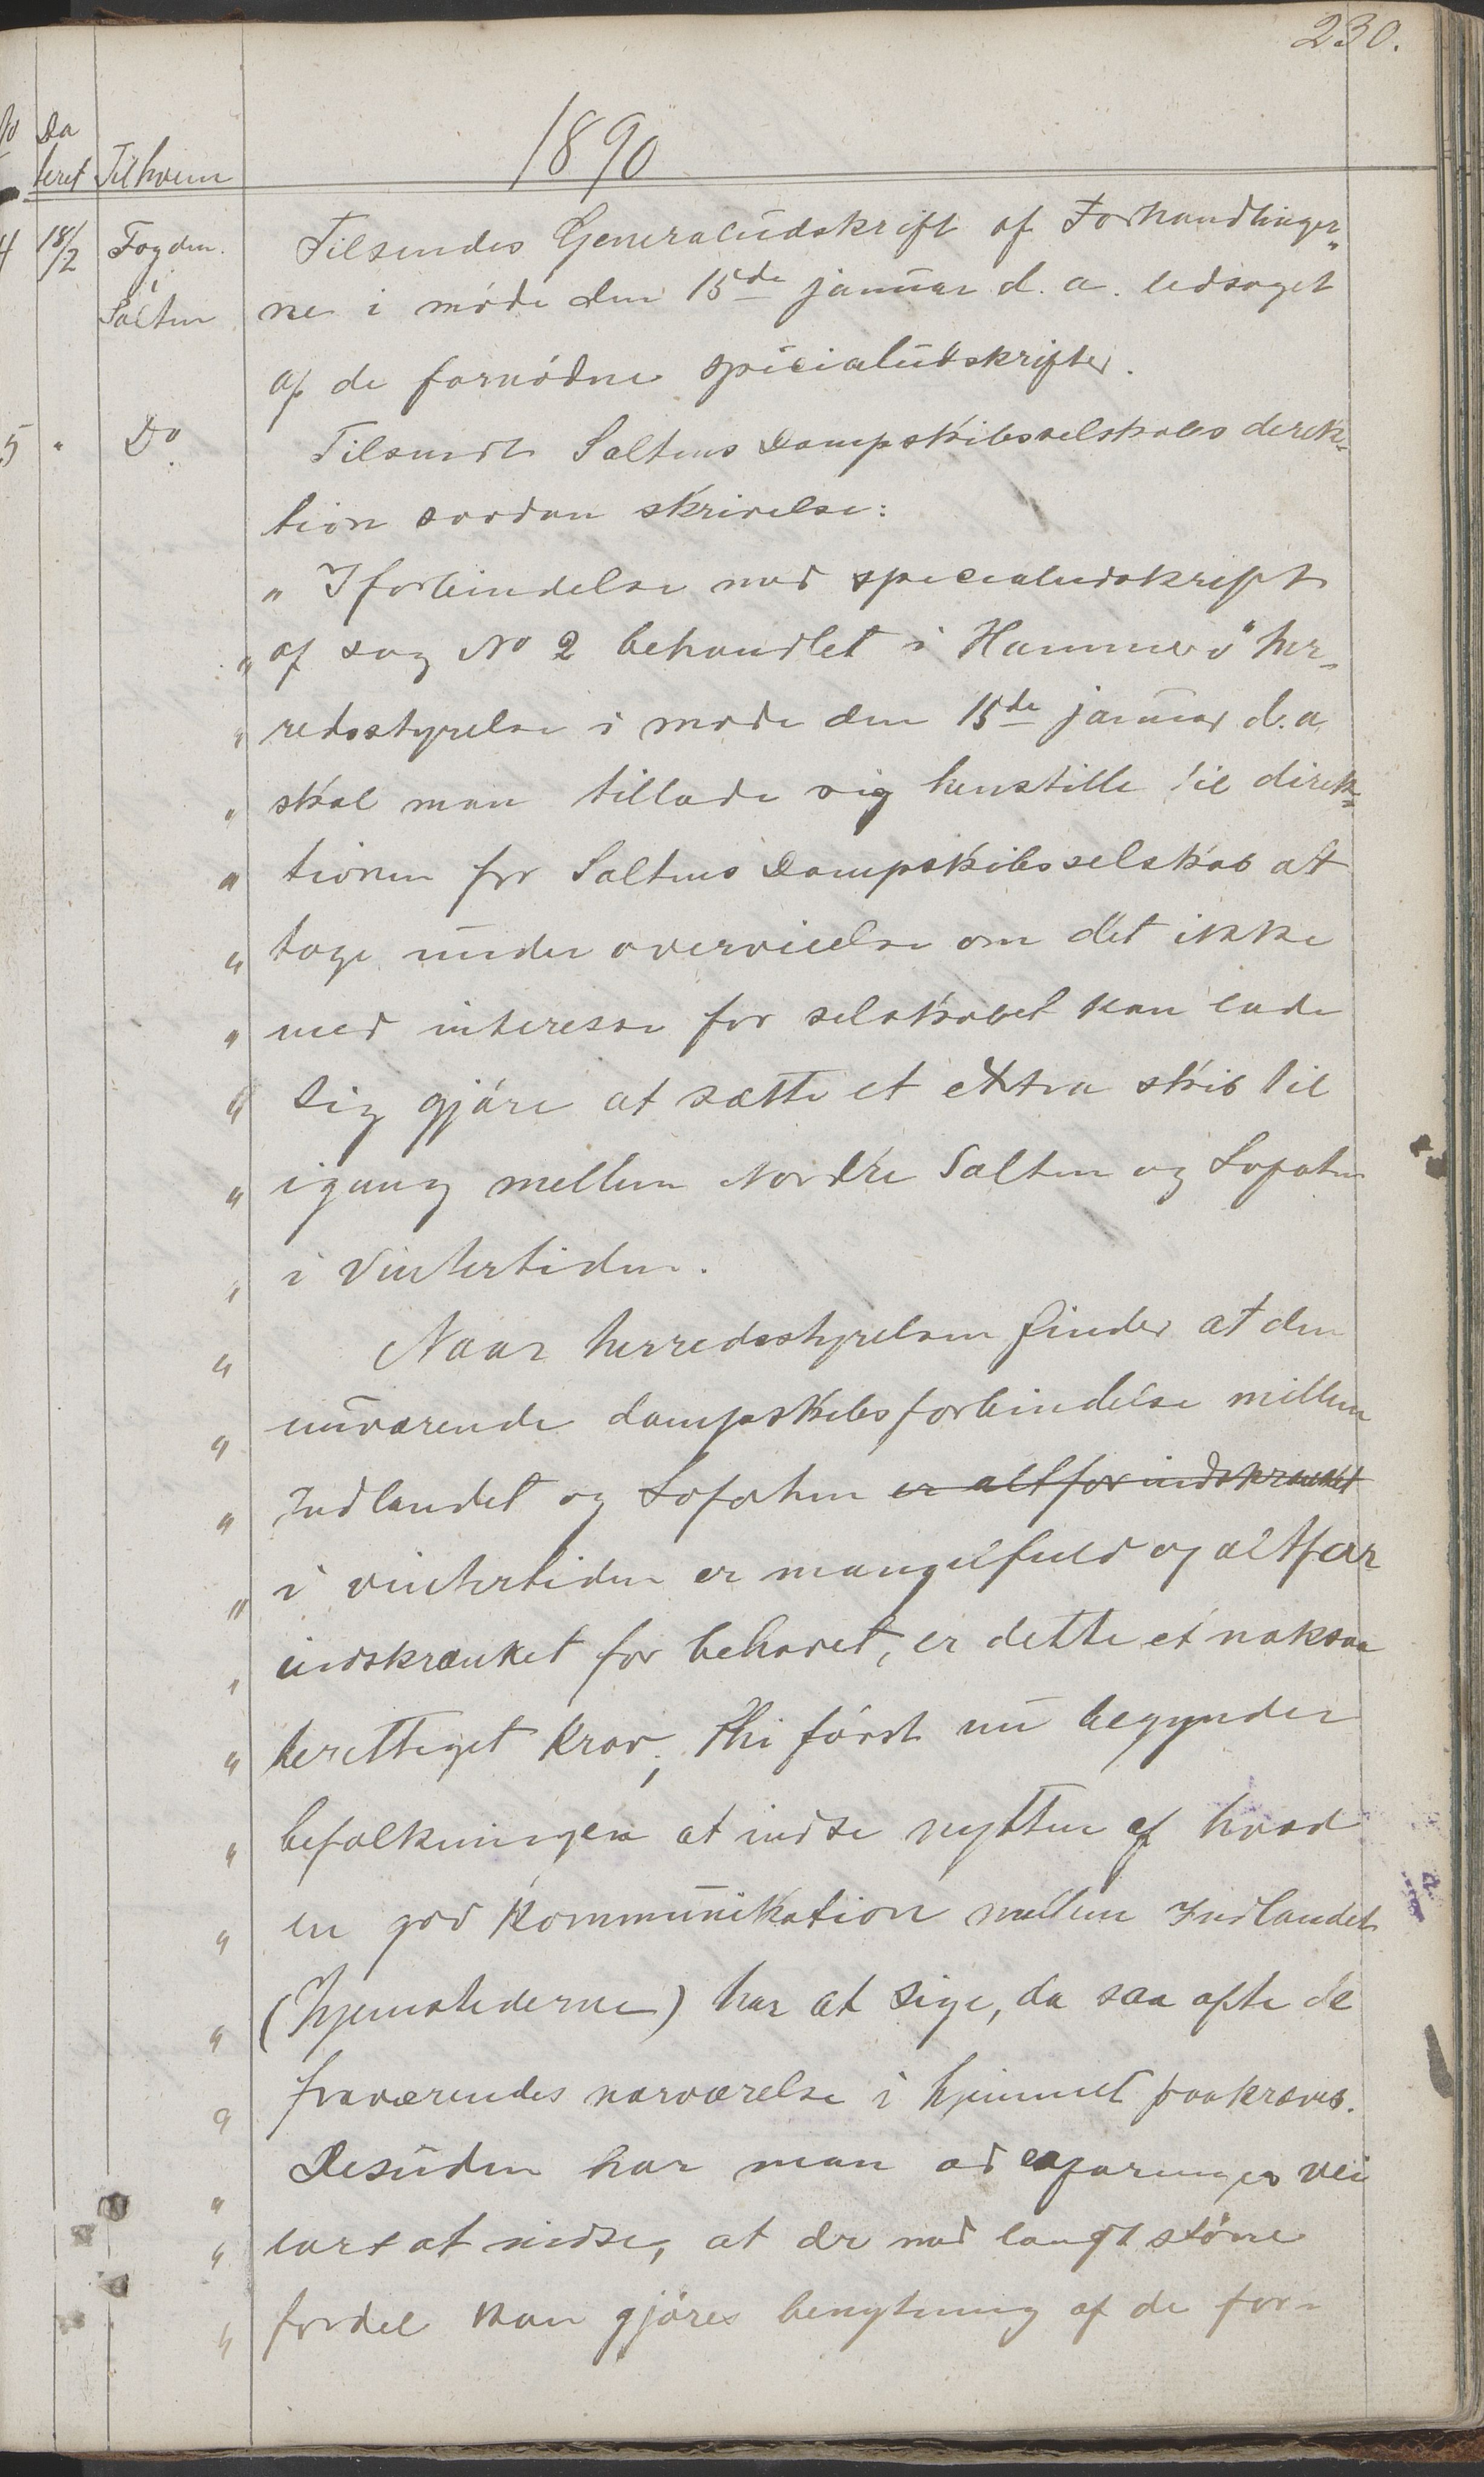 230.
1890
Da
teret Til hvem
4 18/2 Fogden. Tilsendes Generaludskrift af Forhandlinger„
Salten ne i møde den 15de januar d. a. ledsaget
af de fornødne specialudskrifter.
5 " Do. Tilsendt Saltens Dampskibsselskabs direk„
tion saadan skrivelse:
„ I forbindelse med specialudskrift
„ af sag No 2 behandlet i Hammerö her„
„ redsstyrelse i møde den 15de januar d. a.
„ skal man tillade sig henstille til direk„
„ tionen for Saltens Dampskibsselskab at
„ tage under overveielse om det ikke
„ med interesse for selskabet kan lade
„ sig gjøre at sætte et extra skib til
„ igang mellem Nordre Salten og Lofoten
„ i Vintertiden.
„ Naar herredsstyrelsen finder at den
„ nuværende dampskibsforbindelse mellem
„ Indlandet og Lofoten er altfor indskrænket
„ i vintertiden er mangelfuld og altfor
„ indskrænket for behovet, er dette et noksaa
„ berettiget krav; thi først nu begynder
„ befolkningen at indse nytten af hvad
„ en god kommunikation mellem Indlandet
„ (hjemstederne) har at sige, da saa ofte de
„ fraværendes nærværelse i hjemmet paakræves.
„ Desuden har man ad erfaringens vei
„ lært at indse, at der med langt større
„ fordel kan gjøres benytning af de for„